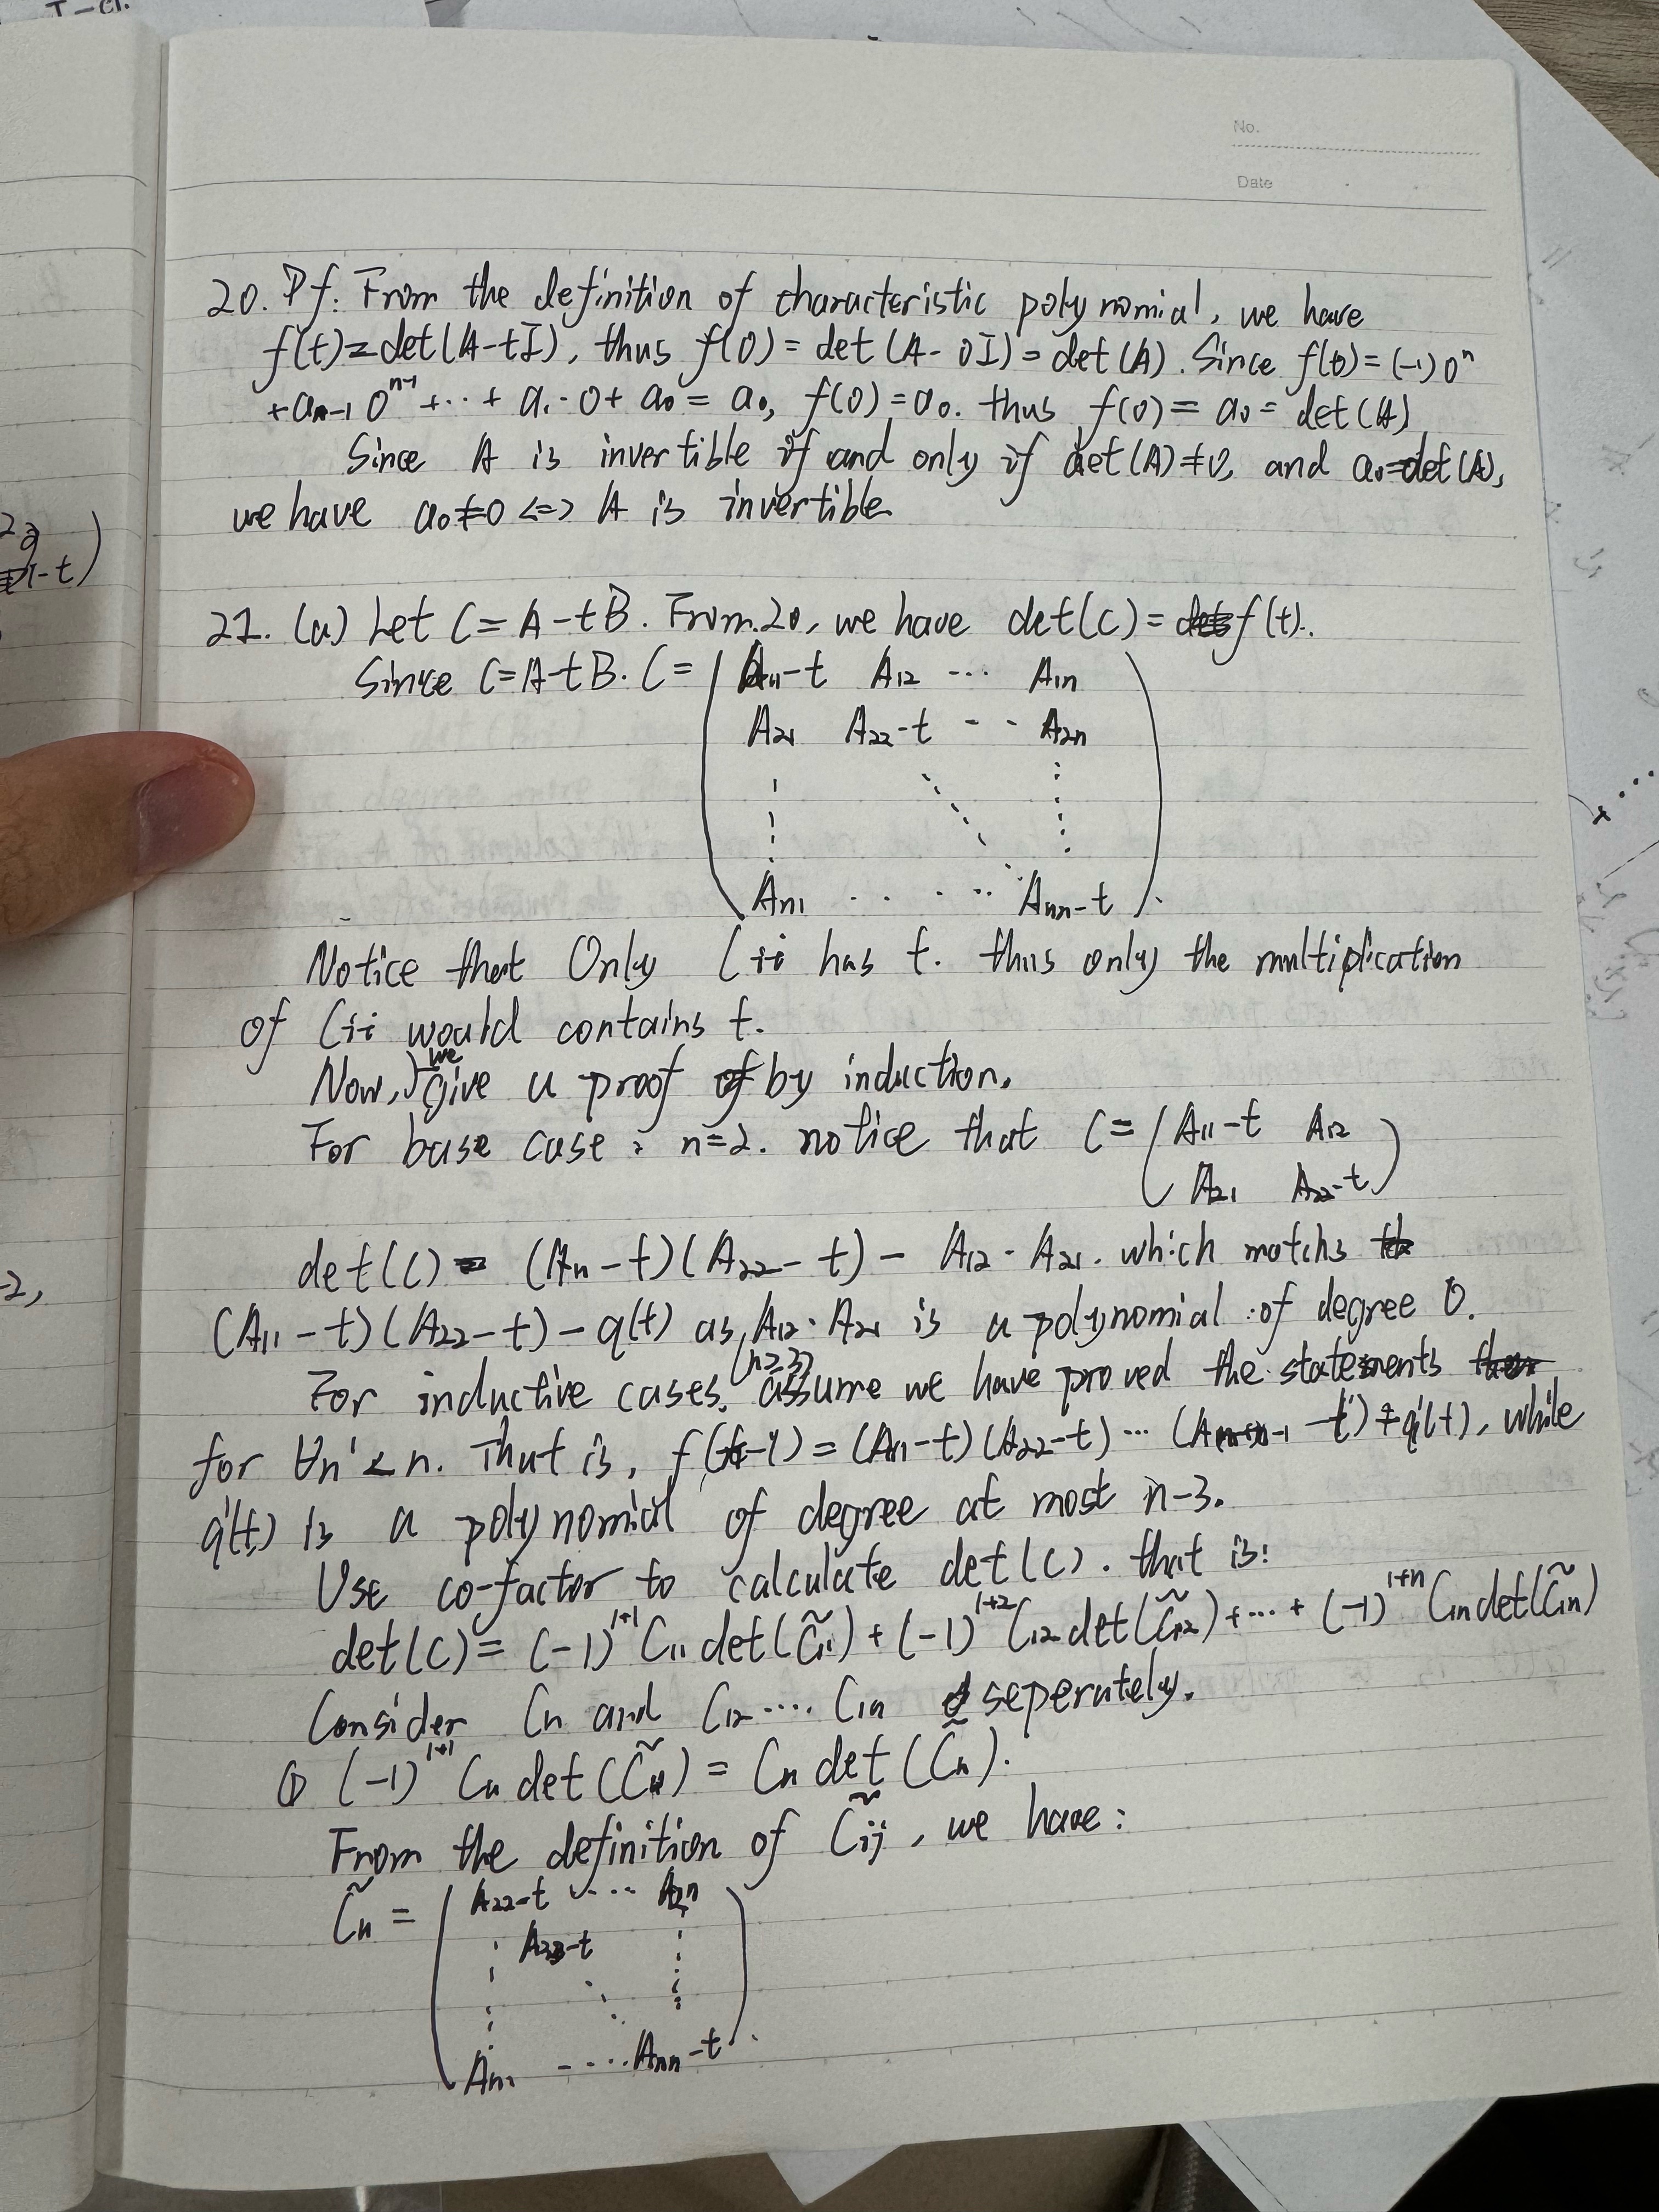 T-
No.
Date
2a
1-t)
-2,
20. Pf: From the definition of characteristic polynomial, we have
f(t)=det(A-tI), thus f(0) = det(A-0I) = det(A). Since f(0) = (-1)0ⁿ
+aₙ₋₁0ⁿ⁻¹+...+ a₁·0+ a₀ = a₀, f(0)=a₀. thus f(0) = a₀ = det(A)
Since A is invertible if and only if det(A)≠0, and a₀=det(A),
we have a₀≠0 <=> A is invertible
21. (a) Let C = A-tB. From 20, we have det(C) = f(t).
Since C=A-tB. C = ( A₁₁-t A₁₂ ... A₁ₙ
A₂₁ A₂₂-t -- A₂ₙ
Aₙ₁ ..... Aₙₙ-t ).
Notice that Only Cᵢᵢ has t. thus only the multiplication
of Cᵢᵢ would contains t.
Now, we give a proof by induction.
For base case: n=2. notice that C = ( A₁₁-t A₁₂
A₂₁ A₂₂-t )
det(C) = (A₁₁-t)(A₂₂-t) - A₁₂·A₂₁. which matchs
(A₁₁-t)(A₂₂-t)-q(t) as A₁₂·A₂₁ is a polynomial of degree 0.
For inductive cases, (n≥3) assume we have proved the statements
for ∀n'<n. That is, = (A₁₁-t)(A₂₂-t)... -t)+q'(t), while
q'(t) is a polynomial of degree at most n-3.
Use co-factor to calculate det(C). that is:
det(C) = (-1)¹⁺¹C₁₁det(C̃₁₁)+(-1)¹⁺²C₁₂det(C̃₁₂)+...+(-1)¹⁺ⁿC₁ₙdet(C̃₁ₙ)
Consider C₁₁ and C₁₂....C₁ₙ seperately.
① (-1)¹⁺¹C₁₁det(C̃₁₁) = C₁₁det(C̃₁₁).
From the definition of C̃ᵢⱼ, we have:
C̃₁₁ = ( A₂₂-t .... A₂ₙ
A₃₃-t
....Aₙₙ-t ).